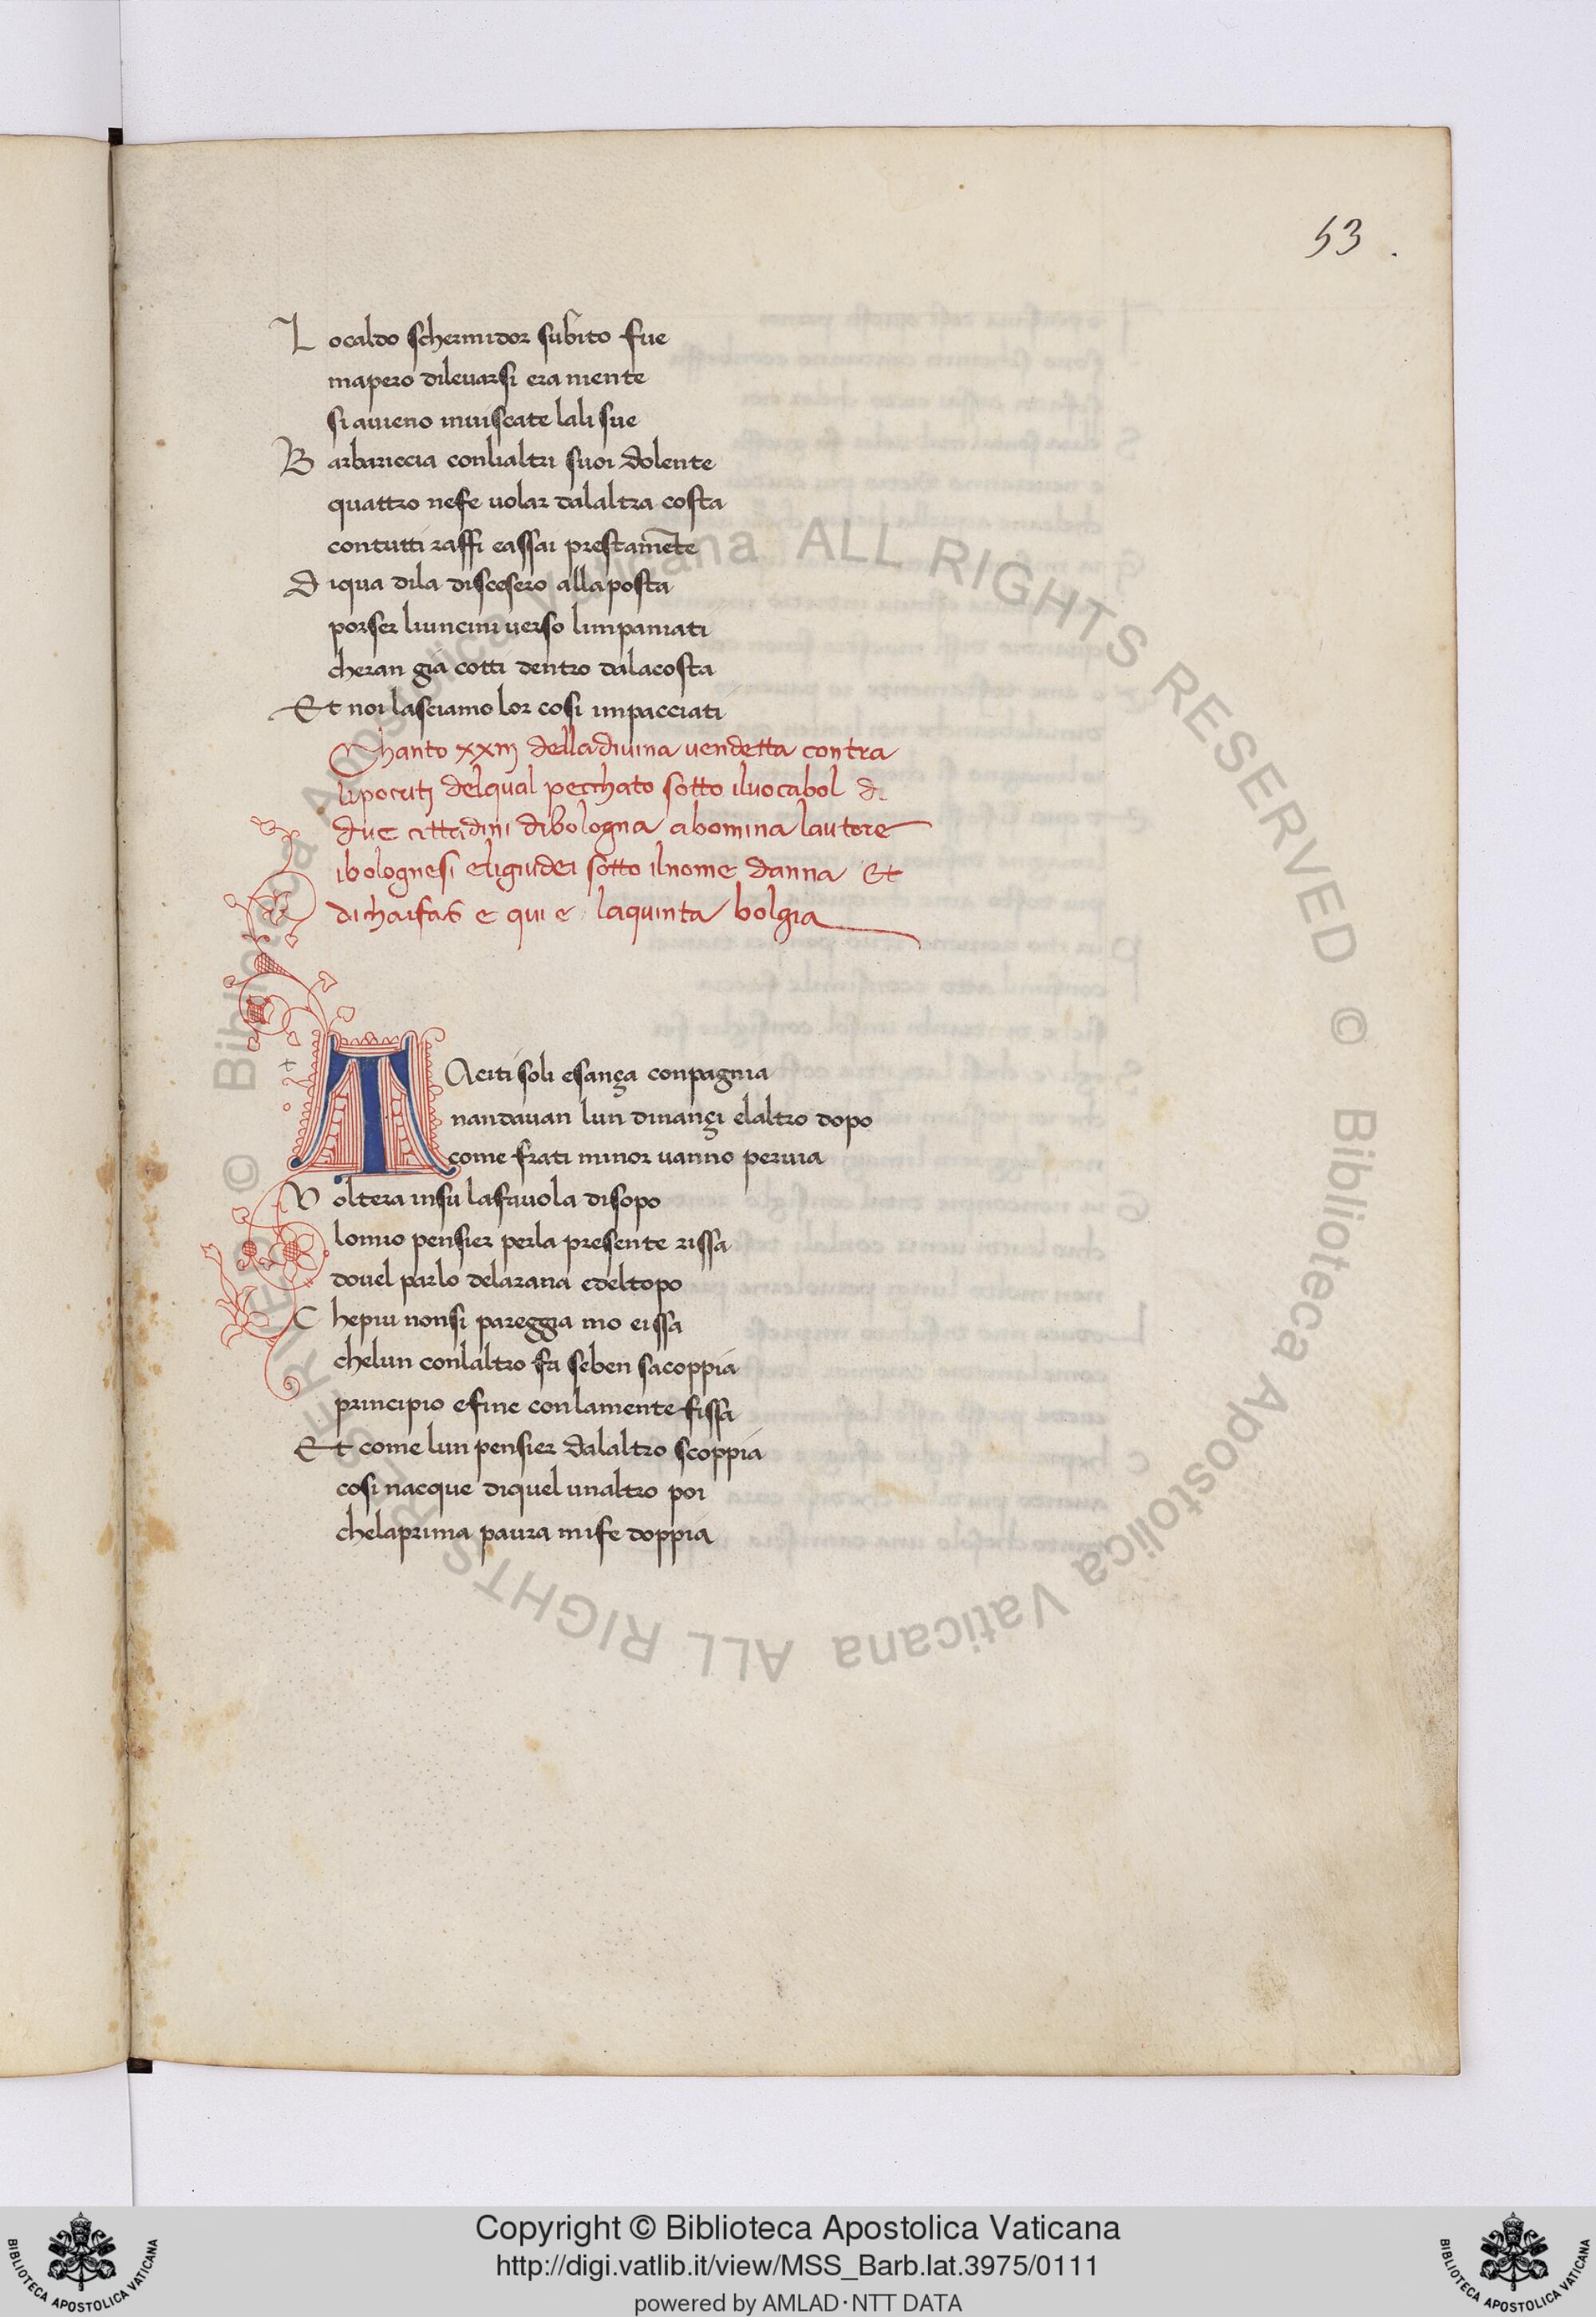 53.
L ocaldo schermidor subito fue
mapero dileuarsi era niente
si auieno inuiscate lali sue
B arbariccia conlialtri suoi dolente
quattro nefe uolar dalaltra costa
contutti raffi eassai prestamēte
D iqua dila discesero alla posta
porser liuncini uerso limpaniati
cheran già cotti dentro dalacosta
Et noi lasciamo lor cosi impacciati
Chanto xxiij della diuina uendetta contra
lipocriti delqual pecchato sotto iluocabol d.
due cittadini dibologna abomina lautore
ibolognesi eligiudei sotto ilnome danna Et
dichaifas e qui e laquinta bolgia
T Aciti soli esança conpagnia
nandauan lun dinançi elaltro dopo
come frati minor uanno peruia
V oltera insu lafauola disopo
lomio pensier perla presente rissa
douel parlo delarana edeltopo
C hepiu nonsi pareggia mo eissa
chelun conlaltro fa seben sacoppia
principio efine conlamente fissa
Et come lun pensier dalaltro scoppia
cosi nacque diquel unaltro poi
chelaprima paura mife doppia
© Biblioteca Apostolica Vaticana ALL RIGHTS RESERVED © Biblioteca Apostolica Vaticana ALL RIGHTS RESERVED
Copyright © Biblioteca Apostolica Vaticana
http://digi.vatlib.it/view/MSS_Barb.lat.3975/0111
powered by AMLAD·NTT DATA
BIBLIOTECA APOSTOLICA VATICANA
BIBLIOTECA APOSTOLICA VATICANA